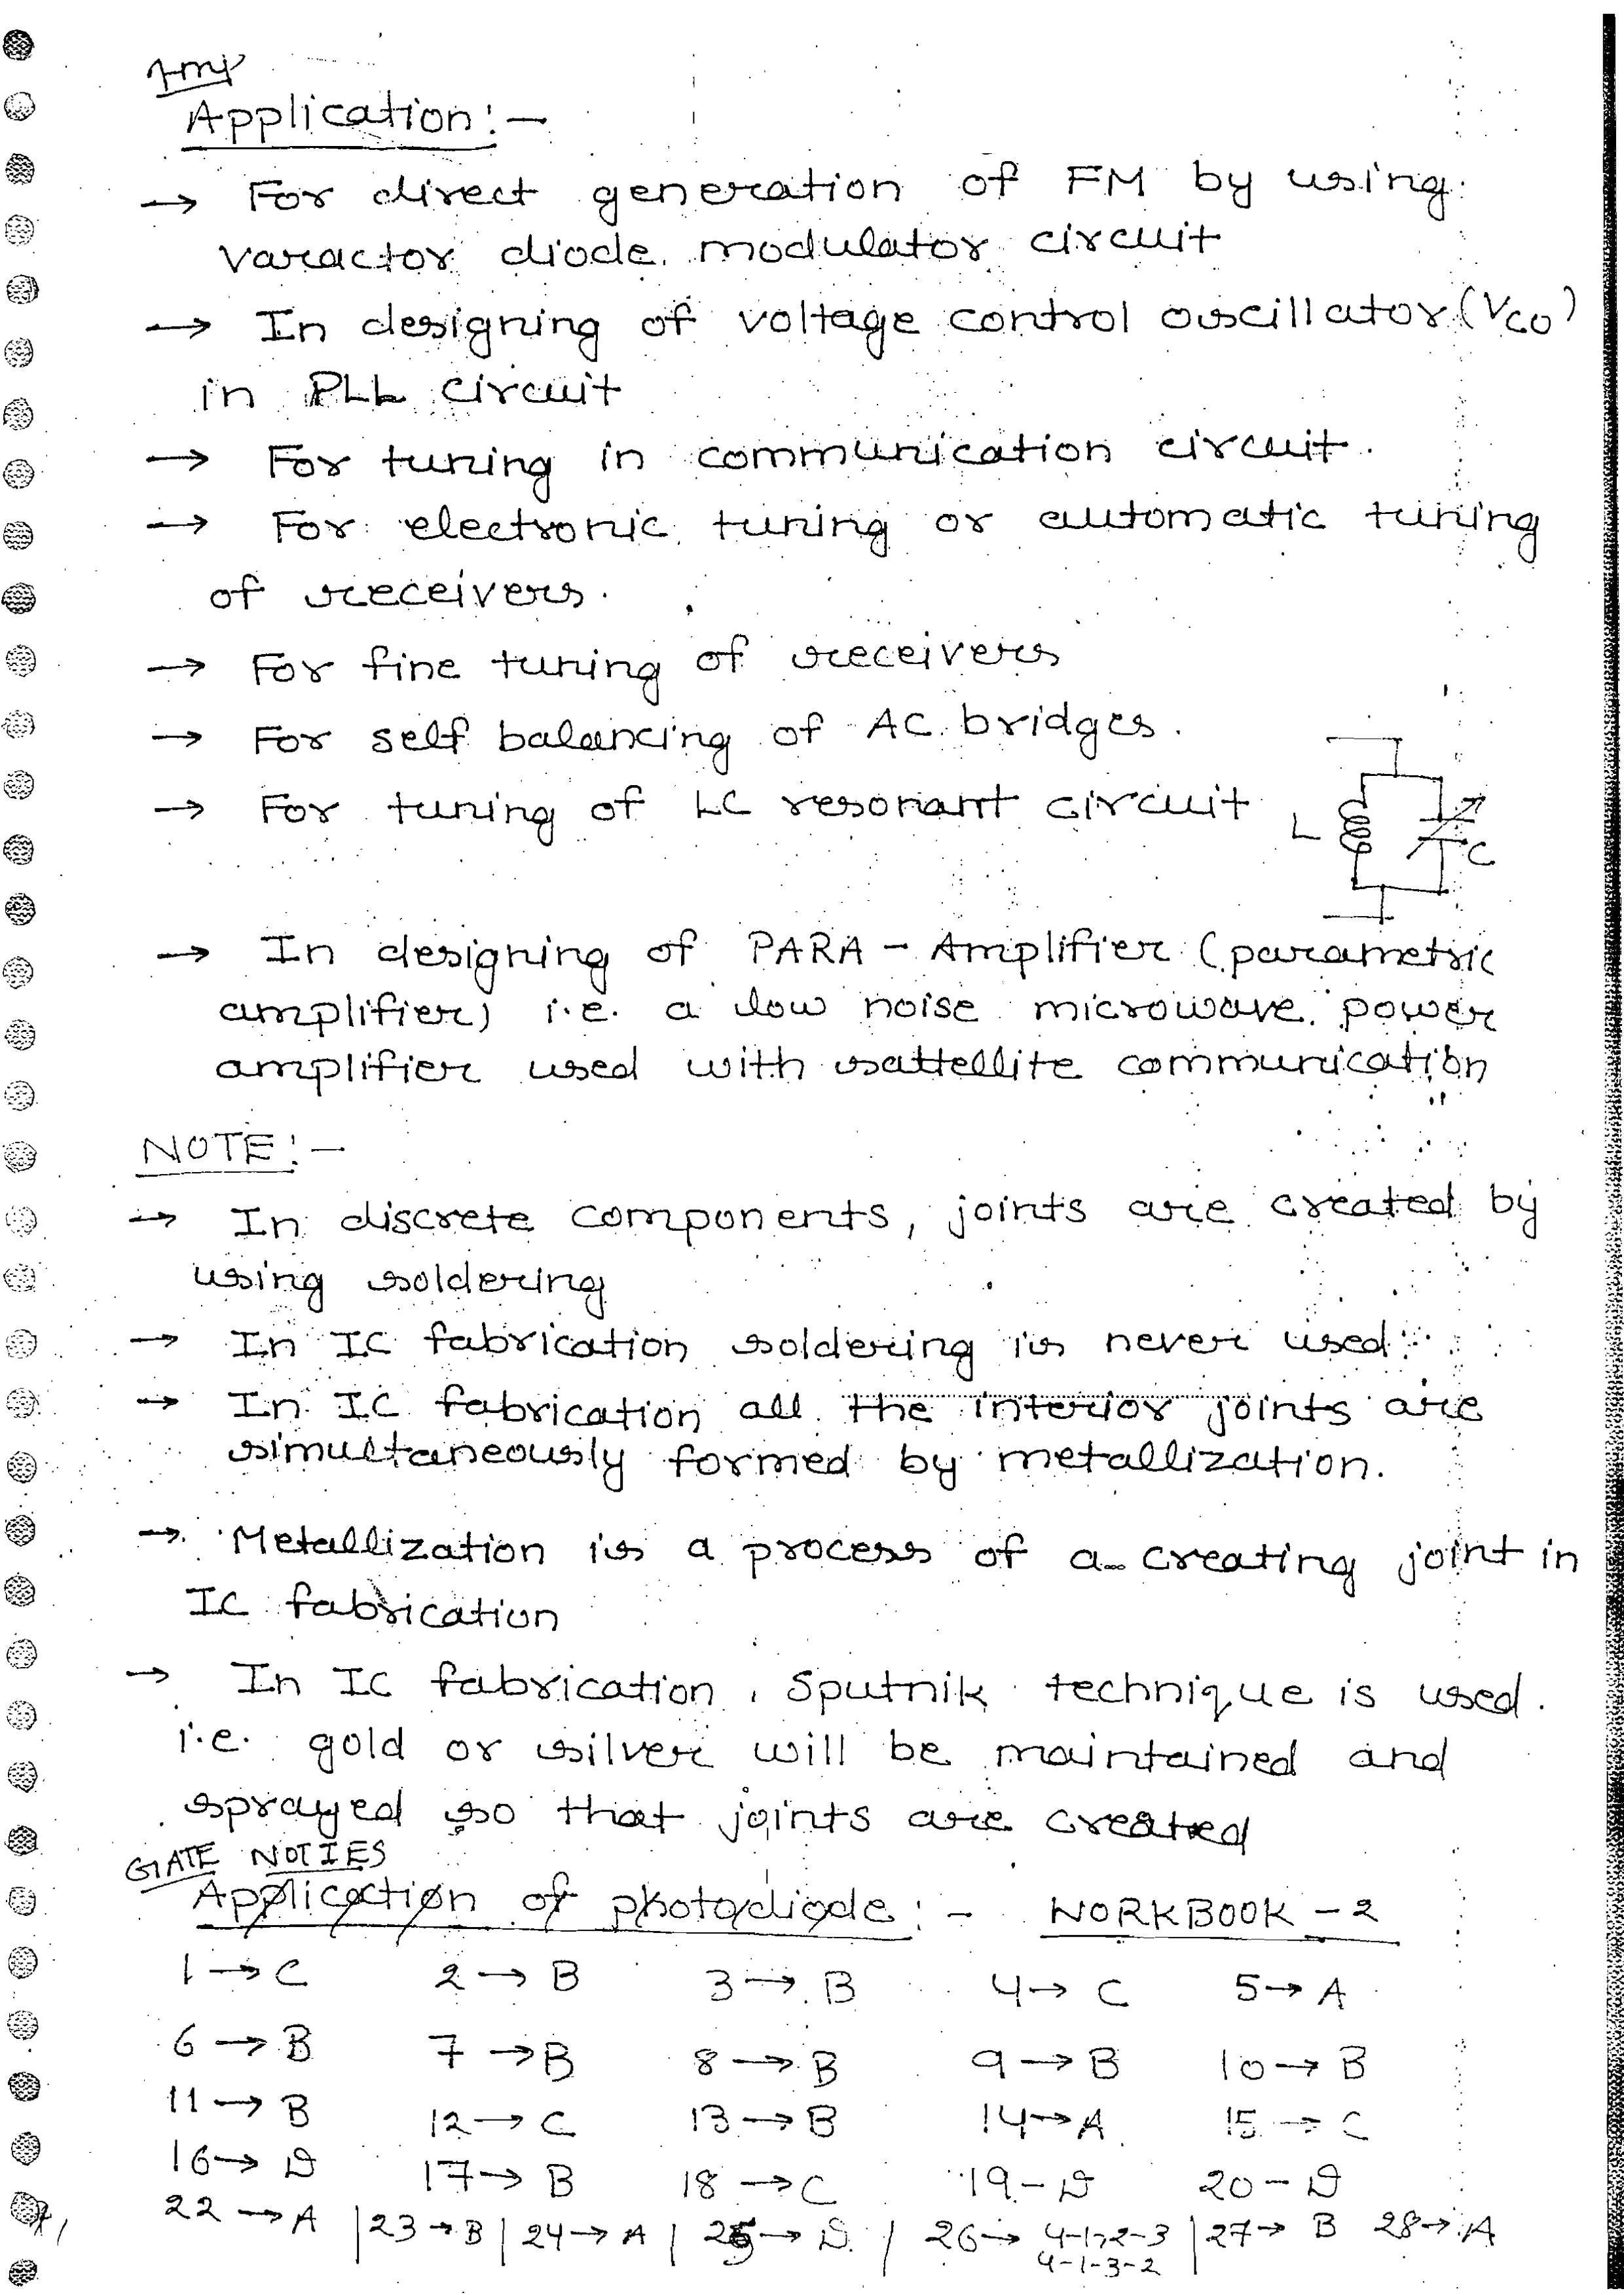 Imp
Application:-
→ For direct generation of FM by using
varactor diode modulator circuit
→ In designing of voltage control oscillator (VCO)
in PLL circuit
→ For tuning in communication circuit.
→ For electronic tuning or automatic tuning
of receivers.
→ For fine tuning of receivers
→ For self balancing of AC bridges.
→ For tuning of LC resonant circuit
L C
→ In designing of PARA - Amplifier (parametric
amplifier) i.e. a low noise microwave power
amplifier used with sattellite communication
NOTE:-
→ In discrete components, joints are created by
using soldering
→ In IC fabrication soldering is never used
→ In IC fabrication all the interior joints are
simultaneously formed by metallization.
→ Metallization is a process of a creating joint in
IC fabrication
→ In IC fabrication, Sputnik technique is used.
i.e. gold or silver will be maintained and
sprayed so that joints are created
GATE NOTIES
Application of photodiode:- WORKBOOK - 2
1 → C 2 → B 3 → B 4 → C 5 → A
6 → B 7 → B 8 → B 9 → B 10 → B
11 → B 12 → C 13 → B 14 → A 15 → C
16 → D 17 → B 18 → C 19 - D 20 - D
22 → A | 23 → B | 24 → A | 25 → D. | 26 → 4-1-2-3 | 27 → B 28 → A
4-1-3-2